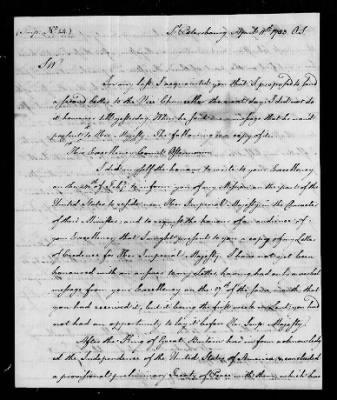 St. Petersburg April 1783 O.S.
Sir
In my last I acquainted you that I proposed to send
a second letter to the Vice Chancellor the next day. I did not do
it however till yesterday. When he sent me a message that he wou'd
present it to Her Majesty. The following is a copy of it.
His Excellency Count Osterman
I did myself the honour to write to your Excellency
on the of Feby. to inform you of my Mission on the part of the
United States to reside near Her Imperial Majesty in the Quality
of their Minister; and to request the honour of an audience of
your Excellency that I might present to you a copy of my Letter
of Credence for Her Imperial Majesty. I have not yet been
honoured with an answer to my Letter, having had only a verbal
message from your Excellency on the of the same month that
you had received it, but it being the first week in Lent, you had
not had an opportunity to lay it before Her Impl. Majesty.
After the King of Great Britain had in form acknowledged
the Independence of the United States of America & concluded
a provisional or preliminary Treaty of Peace with them which has